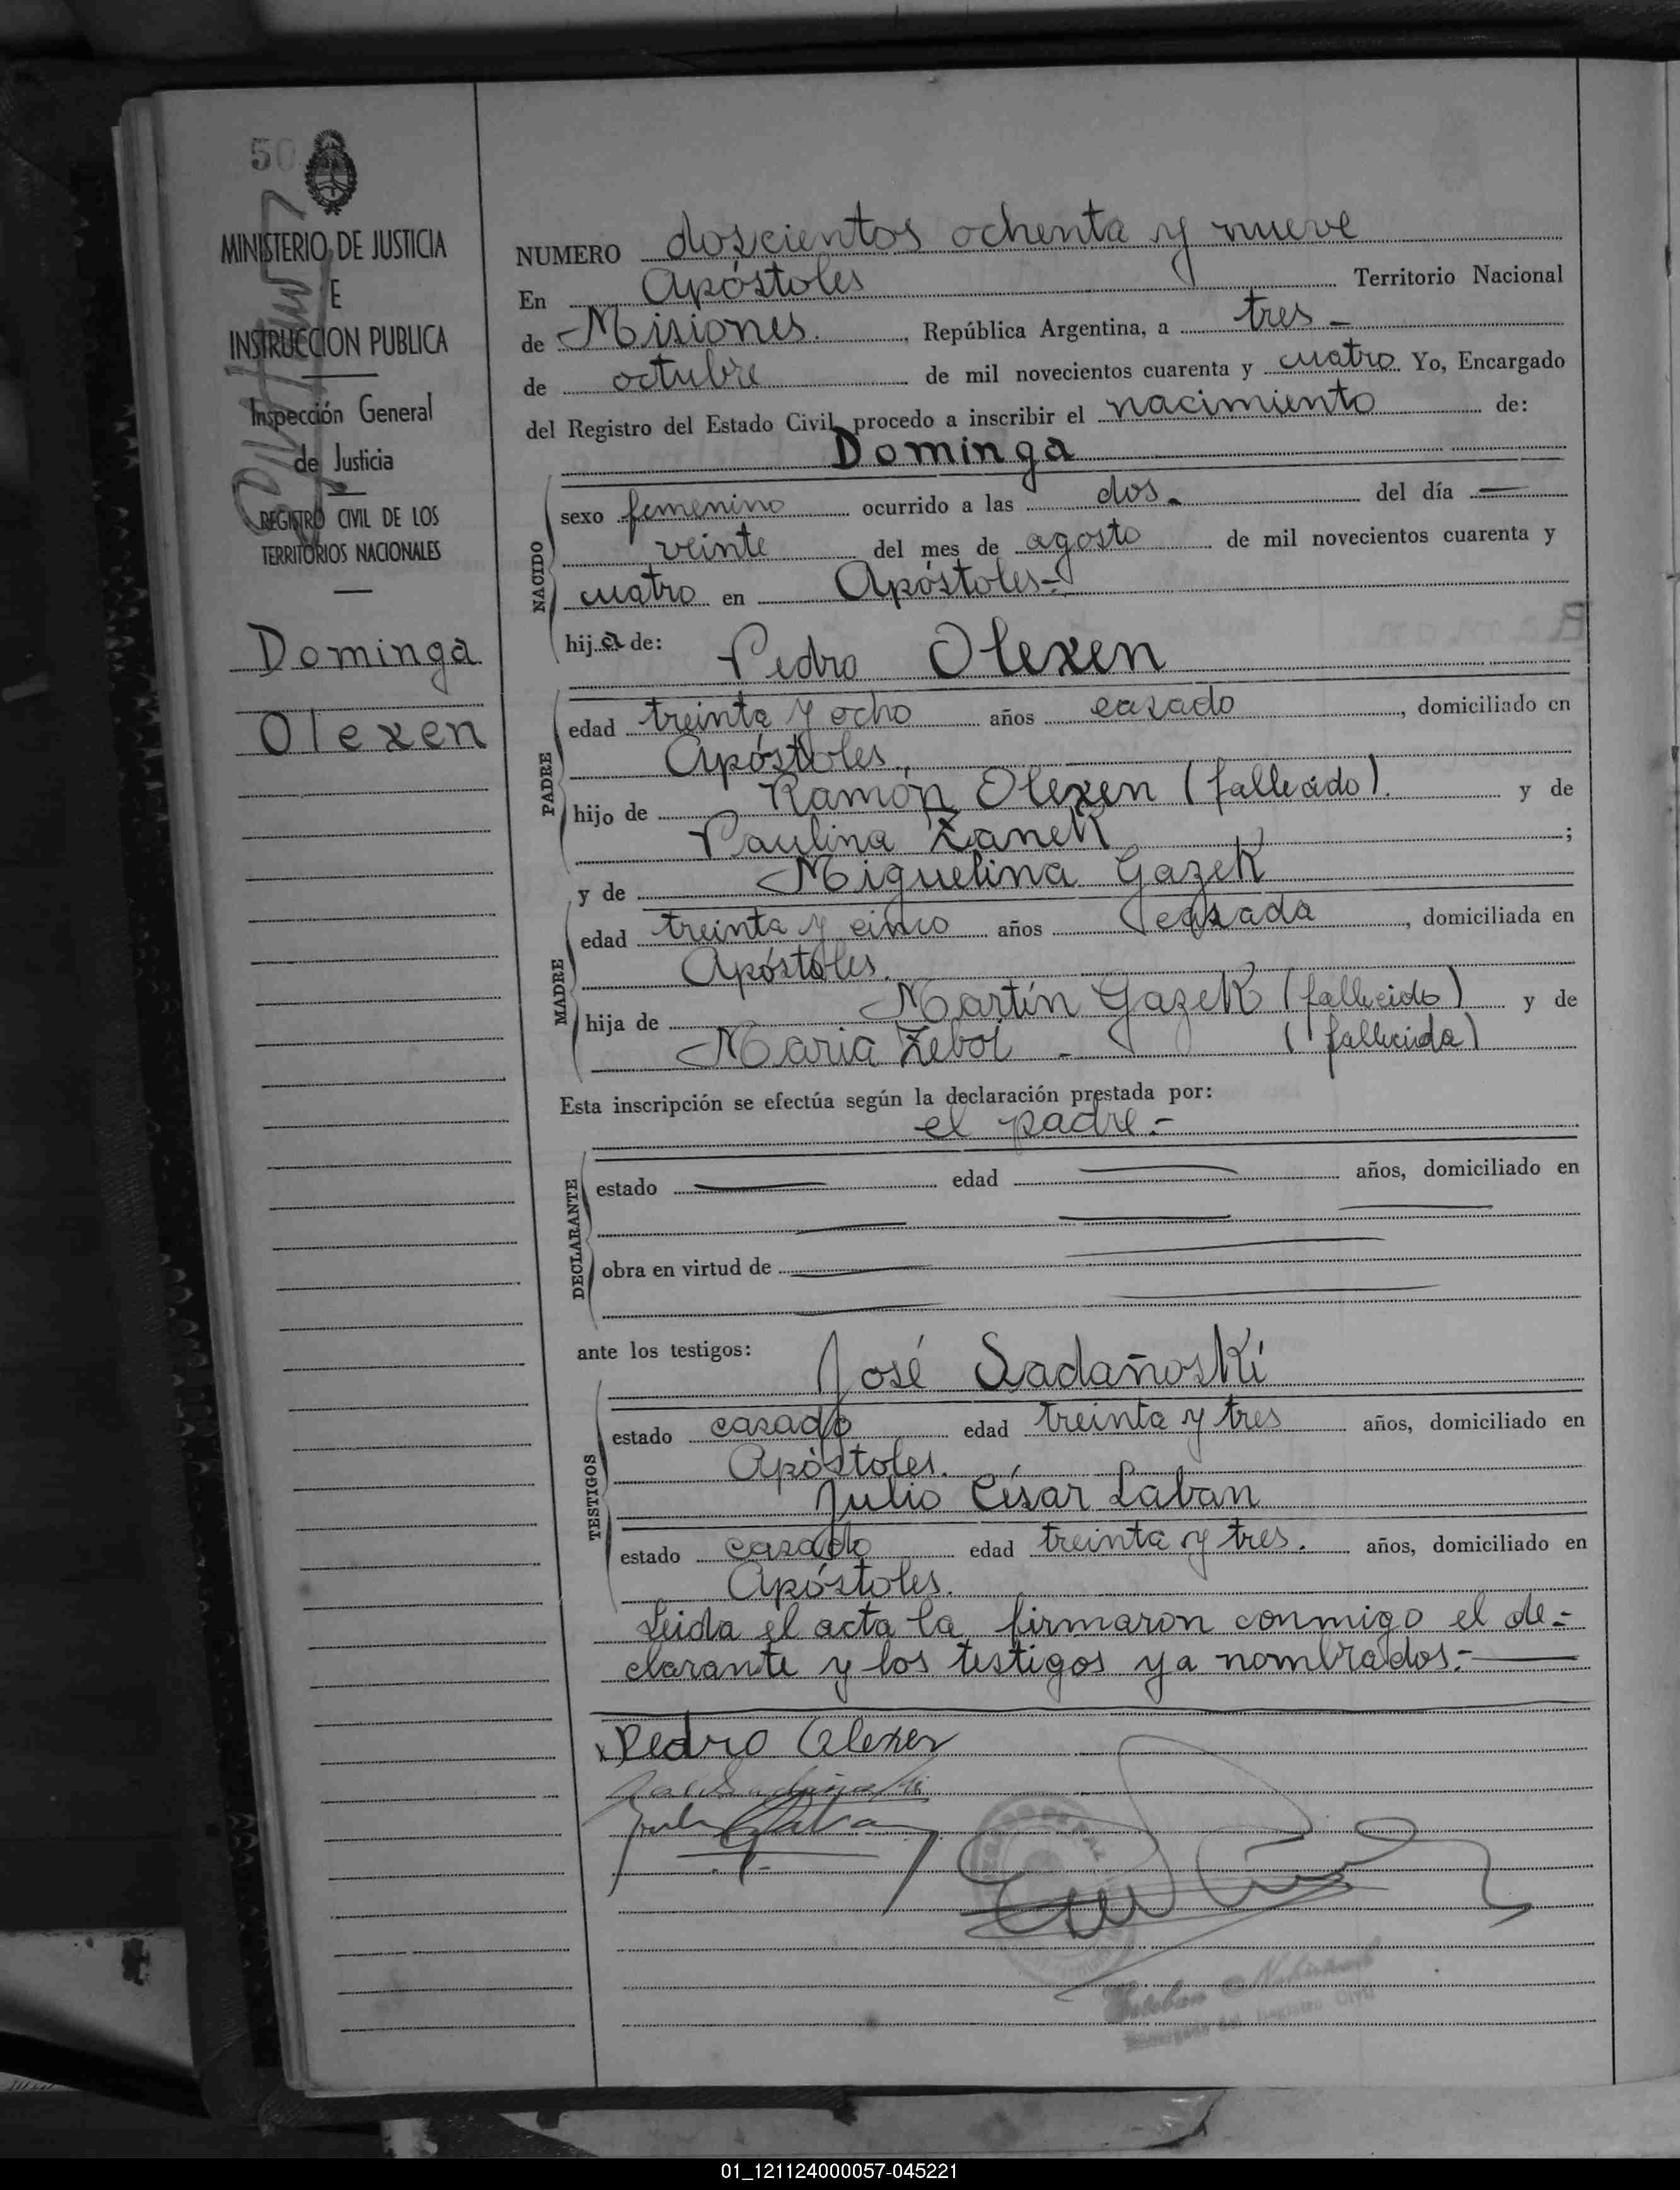 50
MINISTERIO DE JUSTICIA
E
INSTRUCCION PUBLICA
Inspección General
de Justicia
REGISTRO CIVIL DE LOS
TERRITORIOS NACIONALES
Dominga
Olexen
NUMERO doscientos ochenta y nueve
En Apóstoles Territorio Nacional
de Misiones. , República Argentina, a tres -
de octubre de mil novecientos cuarenta y cuatro Yo, Encargado
del Registro del Estado Civil, procedo a inscribir el nacimiento de:
Dominga
NACIDO
sexo femenino ocurrido a las dos. del día —
veinte del mes de agosto de mil novecientos cuarenta y
cuatro en Apóstoles.-
hija de: Pedro Olexen
PADRE
edad treinta y ocho años casado , domiciliado en
Apóstoles.
hijo de Ramón Olexen (fallecido). y de
Paulina Zanek ;
y de Miguelina Gazek
MADRE
edad treinta y cinco años casada , domiciliada en
Apóstoles.
hija de Martín Gazek (fallecido) y de
Maria Zeboi - (fallecida)
Esta inscripción se efectúa según la declaración prestada por:
el padre.-
DECLARANTE
estado — edad — años, domiciliado en
obra en virtud de —
ante los testigos: José Sadañoski
TESTIGOS
estado casado edad treinta y tres años, domiciliado en
Apóstoles.
Julio César Laban
estado casado edad treinta y tres. años, domiciliado en
Apóstoles.
Leida el acta la firmaron conmigo el de-
clarante y los testigos ya nombrados.-
Pedro Olexen
Encargado del Registro Civil
01_121124000057-045221